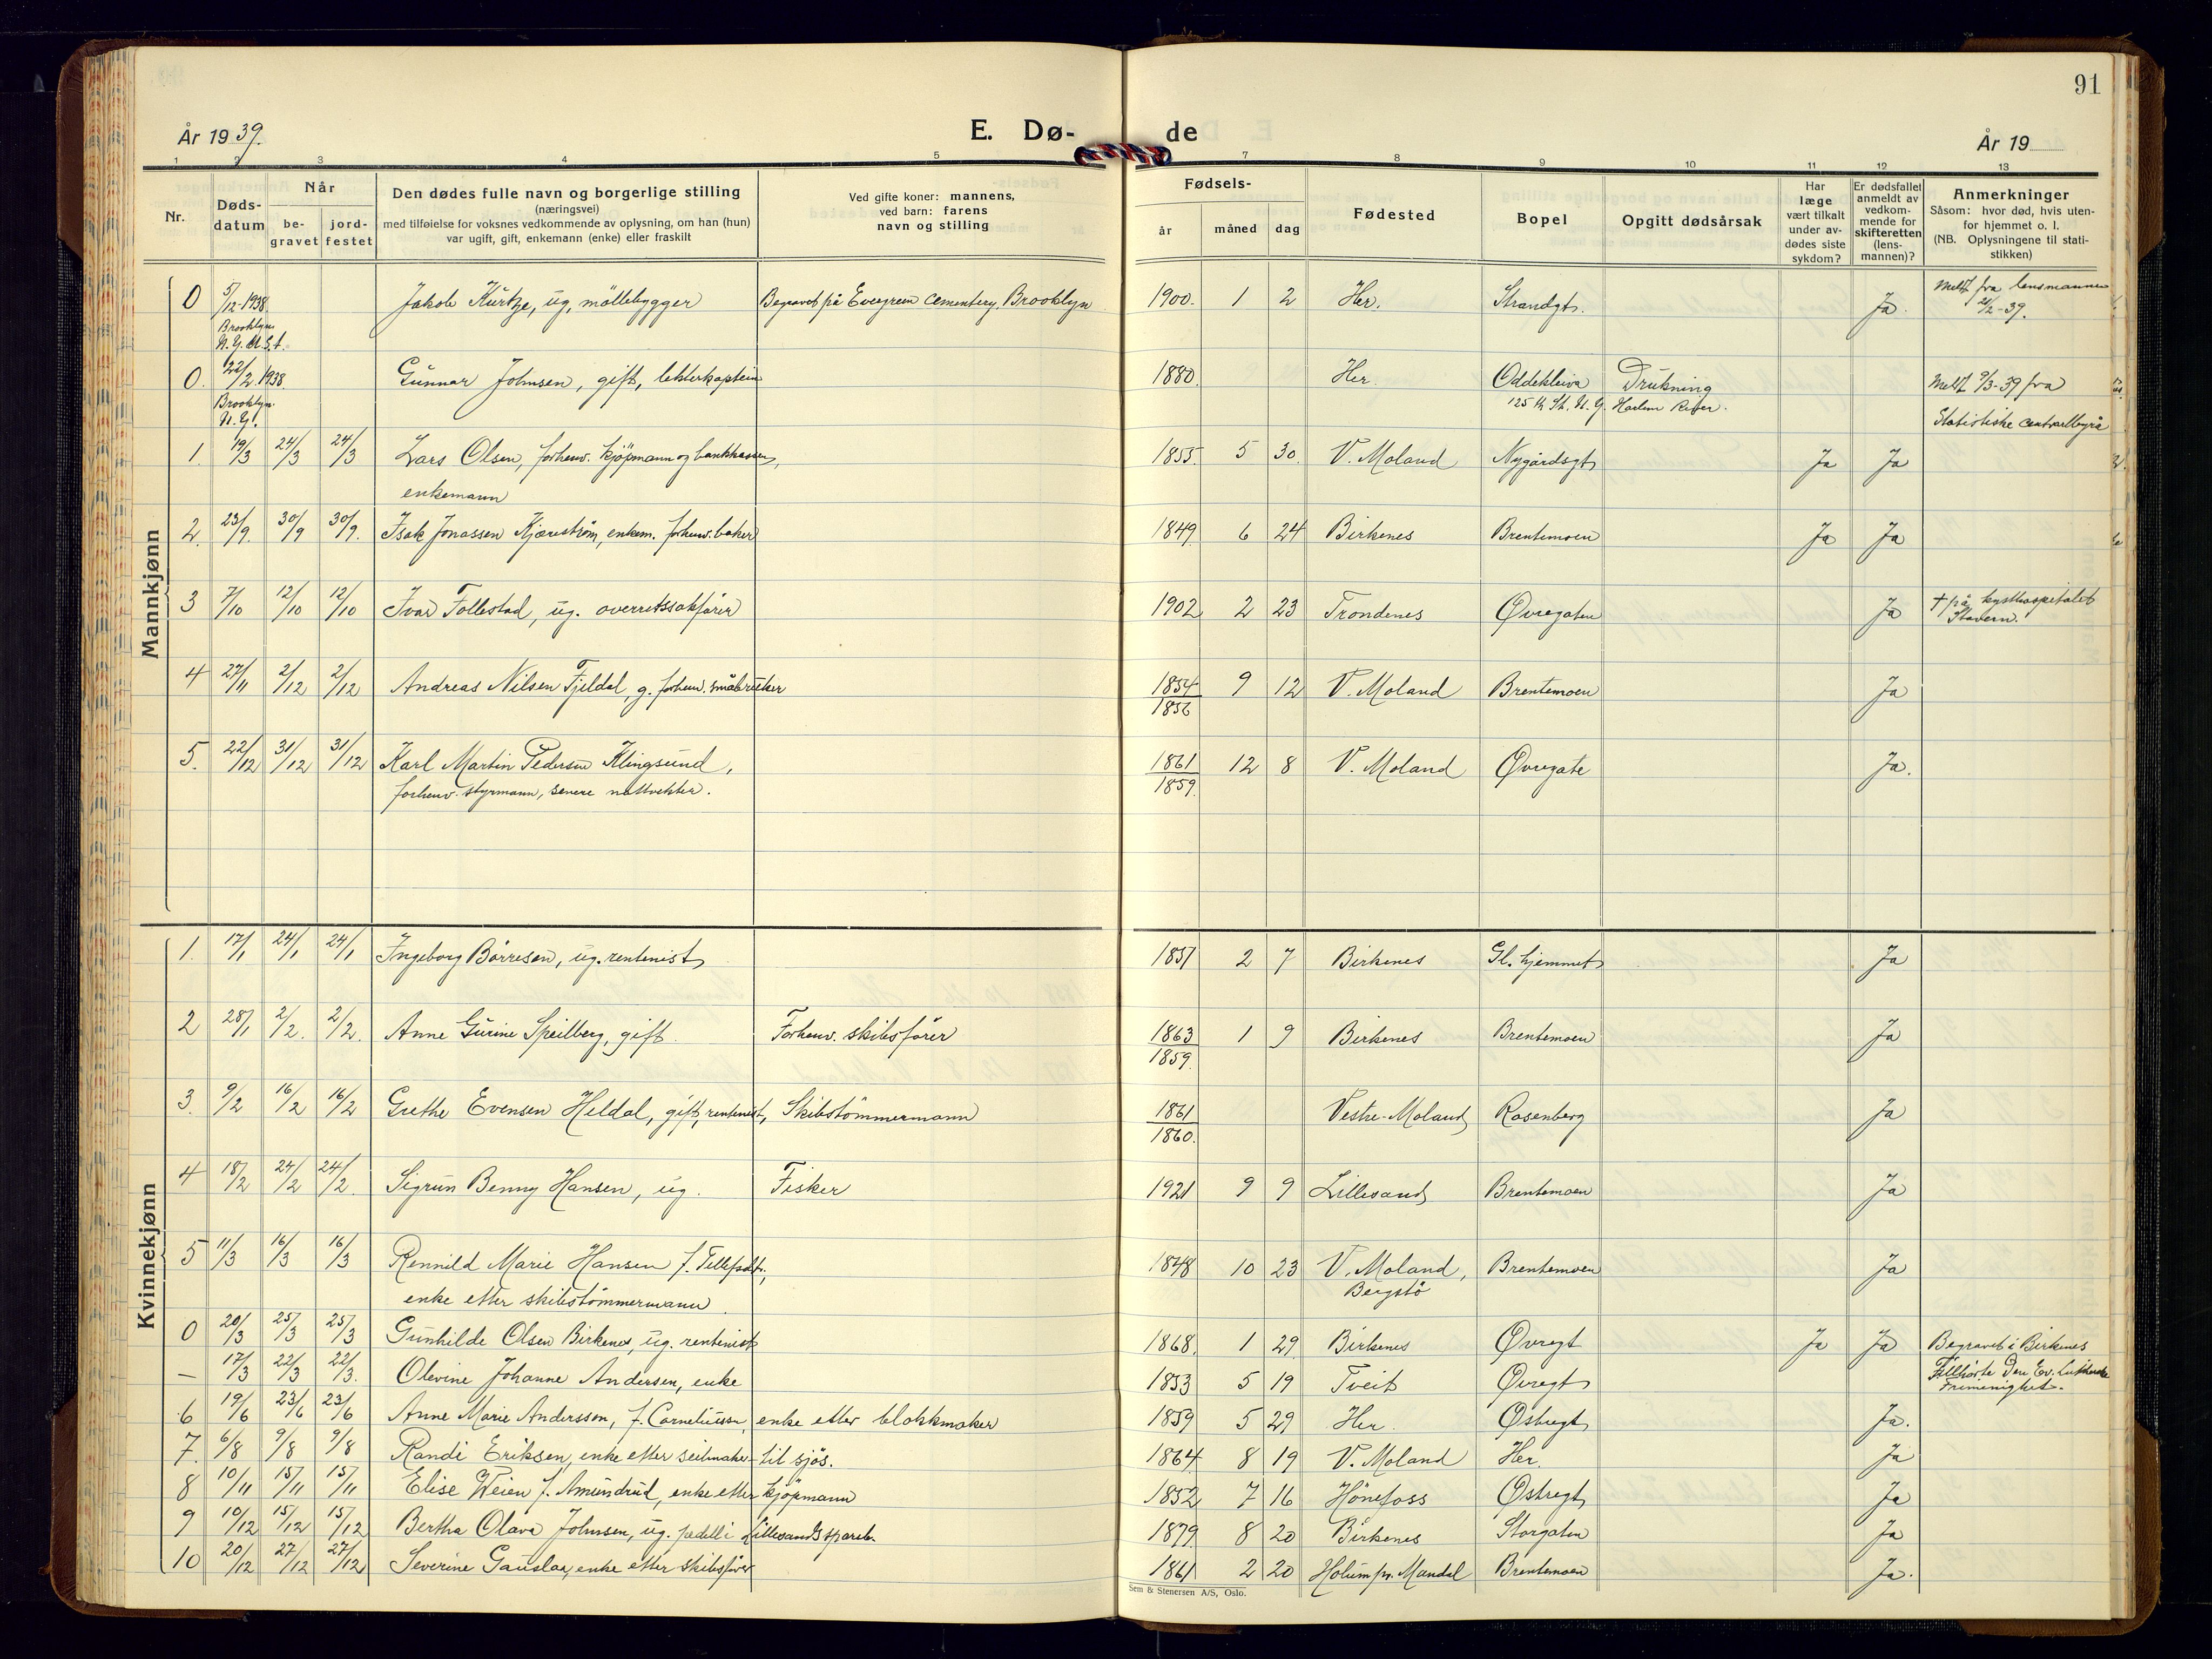 91
År 1939.
E. Dø-
de
År 19
1 2 3 4 5 7 8 9 10 11 12 13
Nr.
Døds-
datum
Når
be-
gravet
jord-
festet
Den dødes fulle navn og borgerlige stilling
(næringsvei)
med tilføielse for voksnes vedkommende av oplysning, om han (hun)
var ugift, gift, enkemann (enke) eller fraskilt
Ved gifte koner: mannens,
ved barn: farens
navn og stilling
Fødsels-
år måned dag
Fødested
Bopel
Opgitt dødsårsak
Har
læge
vært tilkalt
under av-
dødes siste
sykdom?
Er dødsfallet
anmeldt av
vedkom-
mende for
skifteretten
(lens-
mannen)?
Anmerkninger
Såsom: hvor død, hvis uten-
for hjemmet o. l.
(NB. Oplysningene til stati-
stikken)
Mannkjønn
0 5/12-1938. Jakob Kürtze, ug, møllebygger Begravet på Evergreen Cementery, Brooklyn 1900. 1 2 Her. Strandgt. Ja. Meldt fra lensmannen
Brooklyn 2/2-39.
N.Y. U.S.A.
0. 22/2.1938. Gunnar Johnsen, gift, lekterkaptein 1880. Her. Oddekleiva Drukning Meldt 9/3-39 fra
Brooklyn 125th St. N.Y. Harlem River. Statistiske centralbyrå
N.Y.
1. 19/3 24/3 24/3 Lars Olsen, forhenv. kjøpmann og bankkasser, 1855. 5 30. V. Moland Nygårdsgt Ja Ja
enkemann
2. 23/9. 30/9 30/9. Isak Jonassen Kjærström, enkem. forhenv. baker 1849. 6 24 Birkenes Brentemoen Ja Ja
3 7/10 12/10 12/10 Ivar Follestad, ug. overrettssakfører 1902 2 23 Trondenes Øvregaten Ja † på kysthospitalet
Stavern.
4 27/11 2/12 2/12 Andreas Nilsen Fjeldal, g. forhenv. småbruker 1854 9 12 V. Moland Brentemoen Ja
1856
5. 22/12 31/12 31/12 Karl Martin Pedersen Klingsund, 1861 12 8 V. Moland Øvregate Ja.
forhenv. styrmann, senere nattvekter. 1859.
Kvinnekjønn
1. 17/1 24/1 24/1 Ingeborg Børresen, ug. rentenist 1857 2 7 Birkenes Gl. hjemmet Ja
2 28/1 2/2. 2/2. Anne Gurine Speilberg, gift. Forhenv. skibsfører 1863 1 9 Birkenes Brentemoen Ja
1859.
3. 9/2 16/2 16/2 Grethe Evensen Heldal, gift, rentenist, Skibstømmermann 1861 Vestre-Moland Rosenberg Ja
1860.
4 18/2 24/2 24/2. Sigrun Benny Hansen, ug. Fisker 1921 9 9 Lillesand Brentemoen Ja
5 11/3 16/3 16/3 Rennild Marie Hansen f. Tellefsdt., 1848 10 23 V. Moland, Brentemoen Ja
enke etter skibstømmermann. Bergstø
0 20/3 25/3 25/3 Gunhilde Olsen Birkenes, ug. rentenist 1868. 1 29. Birkenes Øvregt Ja Ja Begravet i Birkenes
— 17/3 22/3 22/3. Olevine Johanne Andersen, enke 1853 5 19 Tveit Øvregt Tilhørte Den Ev. Lutherske
Frimenighet.
6 19/6 23/6 23/6 Anne Marie Anderssen, f. Corneliussen, enke etter blokkmaker 1859 5 29 Her. Østregt Ja.
7. 6/8 9/8 9/8 Randi Eriksen, enke etter seilmaker til sjøs. 1864 8 19 V. Moland Her. Ja
8 10/11 15/11 15/11 Elise Weien f. Amundrud, enke etter kjøpmann 1852 7 16 Hönefoss Østregt Ja
9 10/12 15/12 15/12 Bertha Olava Johnsen, ug. pedell i Lillesands spareb. 1879. 8 20 Birkenes Storgaten Ja
10 20/12 27/12 27/12 Severine Gauslaa, enke etter skibsfører 1861 2 20 Holum pr. Mandal Brentemoen Ja.
Sem & Stenersen A/S, Oslo.